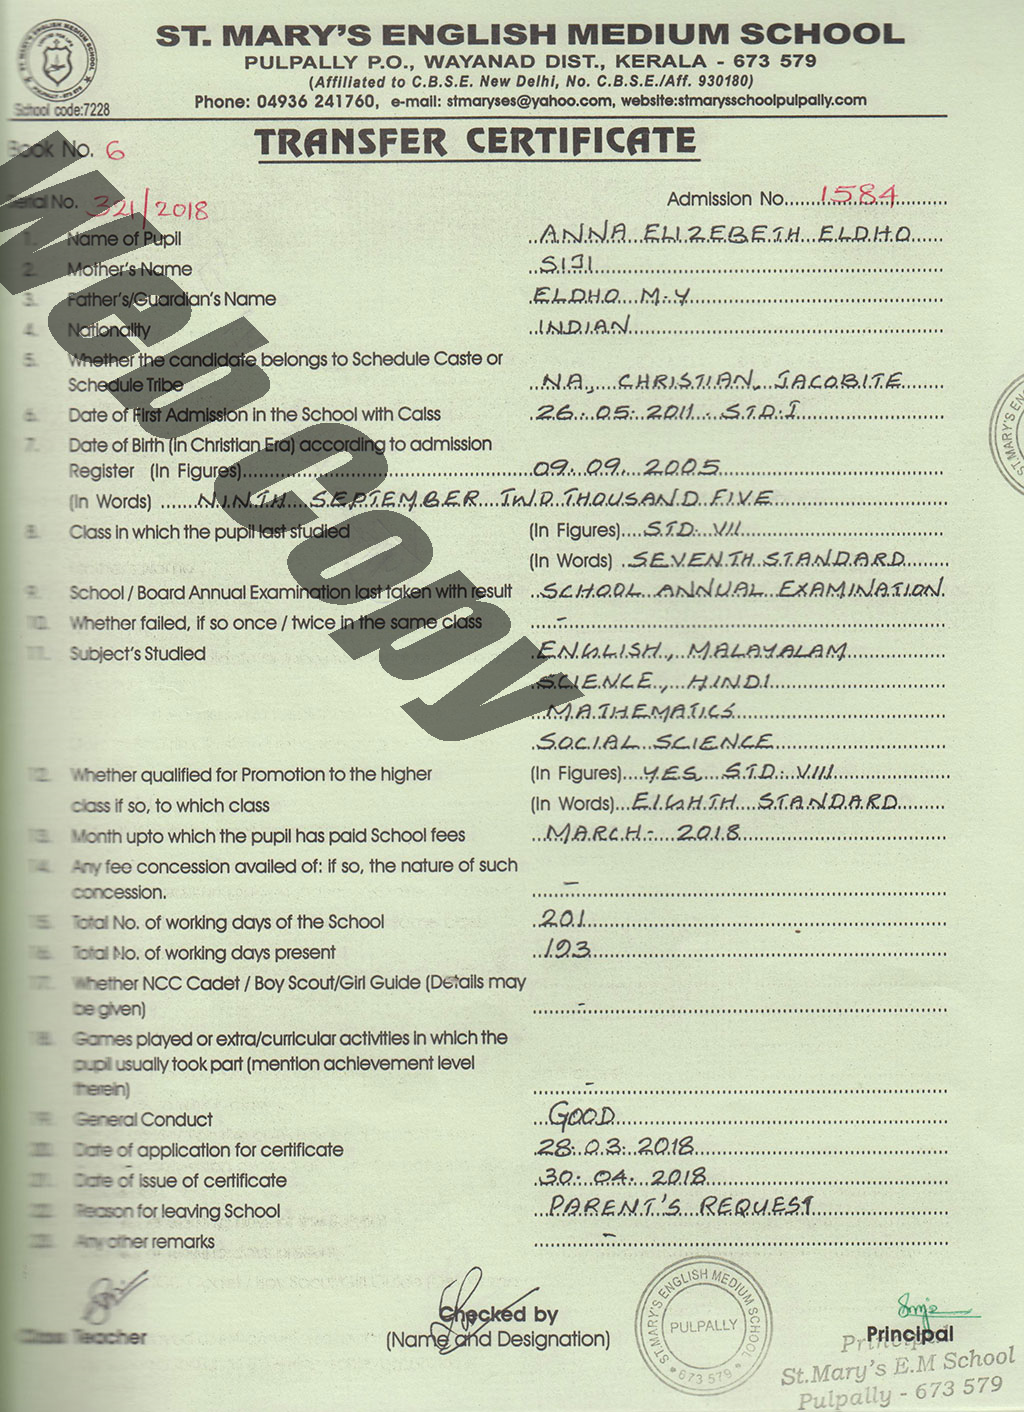 ST. MARY'S ENGLISH MEDIUM SCHOOL
PULPALLY P.O., WAYANAD DIST., KERALA - 673 579
(Affiliated to C.B.S.E. New Delhi, No. C.B.S.E./Aff. 930180)
School code:7228
Phone: 04936 241760, e-mail: stmaryses@yahoo.com, website:stmarysschoolpulpally.com
TRANSFER CERTIFICATE
Book No. 6
Serial No. 321/2018 Admission No. 1584
1. Name of Pupil ANNA ELIZEBETH ELDHO
2. Mother's Name SIJI
3. Father's/Guardian's Name ELDHO M.Y
4. Nationality INDIAN
5. Whether the candidate belongs to Schedule Caste or
Schedule Tribe NA, CHRISTIAN, JACOBITE
6. Date of First Admission in the School with Calss 26.05.2011. STD.I
7. Date of Birth (in Christian Era) according to admission
Register (In Figures) 09.09.2005
(In Words) NINTH SEPTEMBER TWO THOUSAND FIVE
8. Class in which the pupil last studied (In Figures) STD. VII
(In Words) SEVENTH STANDARD
9. School / Board Annual Examination last taken with result SCHOOL ANNUAL EXAMINATION
10. Whether failed, if so once / twice in the same class -
11. Subject's Studied ENGLISH, MALAYALAM
SCIENCE, HINDI
MATHEMATICS
SOCIAL SCIENCE
12. Whether qualified for Promotion to the higher (In Figures) YES STD. VIII
class if so, to which class (In Words) EIGHTH STANDARD
13. Month upto which the pupil has paid School fees MARCH - 2018
14. Any fee concession availed of: if so, the nature of such
concession. -
15. Total No. of working days of the School 201
16. Total No. of working days present 193
17. Whether NCC Cadet / Boy Scout/Girl Guide (Details may
be given) -
18. Games played or extra/curricular activities in which the
pupil usually took part (mention achievement level
therein) -
19. General Conduct GOOD
20. Date of application for certificate 28.03.2018
21. Date of issue of certificate 30.04.2018
22. Reason for leaving School PARENT'S REQUEST
23. Any other remarks -
Class Teacher
Checked by
(Name and Designation)
ST.MARY'S ENGLISH MEDIUM SCHOOL
PULPALLY
673 579
Principal
Principal
St.Mary's E.M School
Pulpally - 673 579
Web Copy